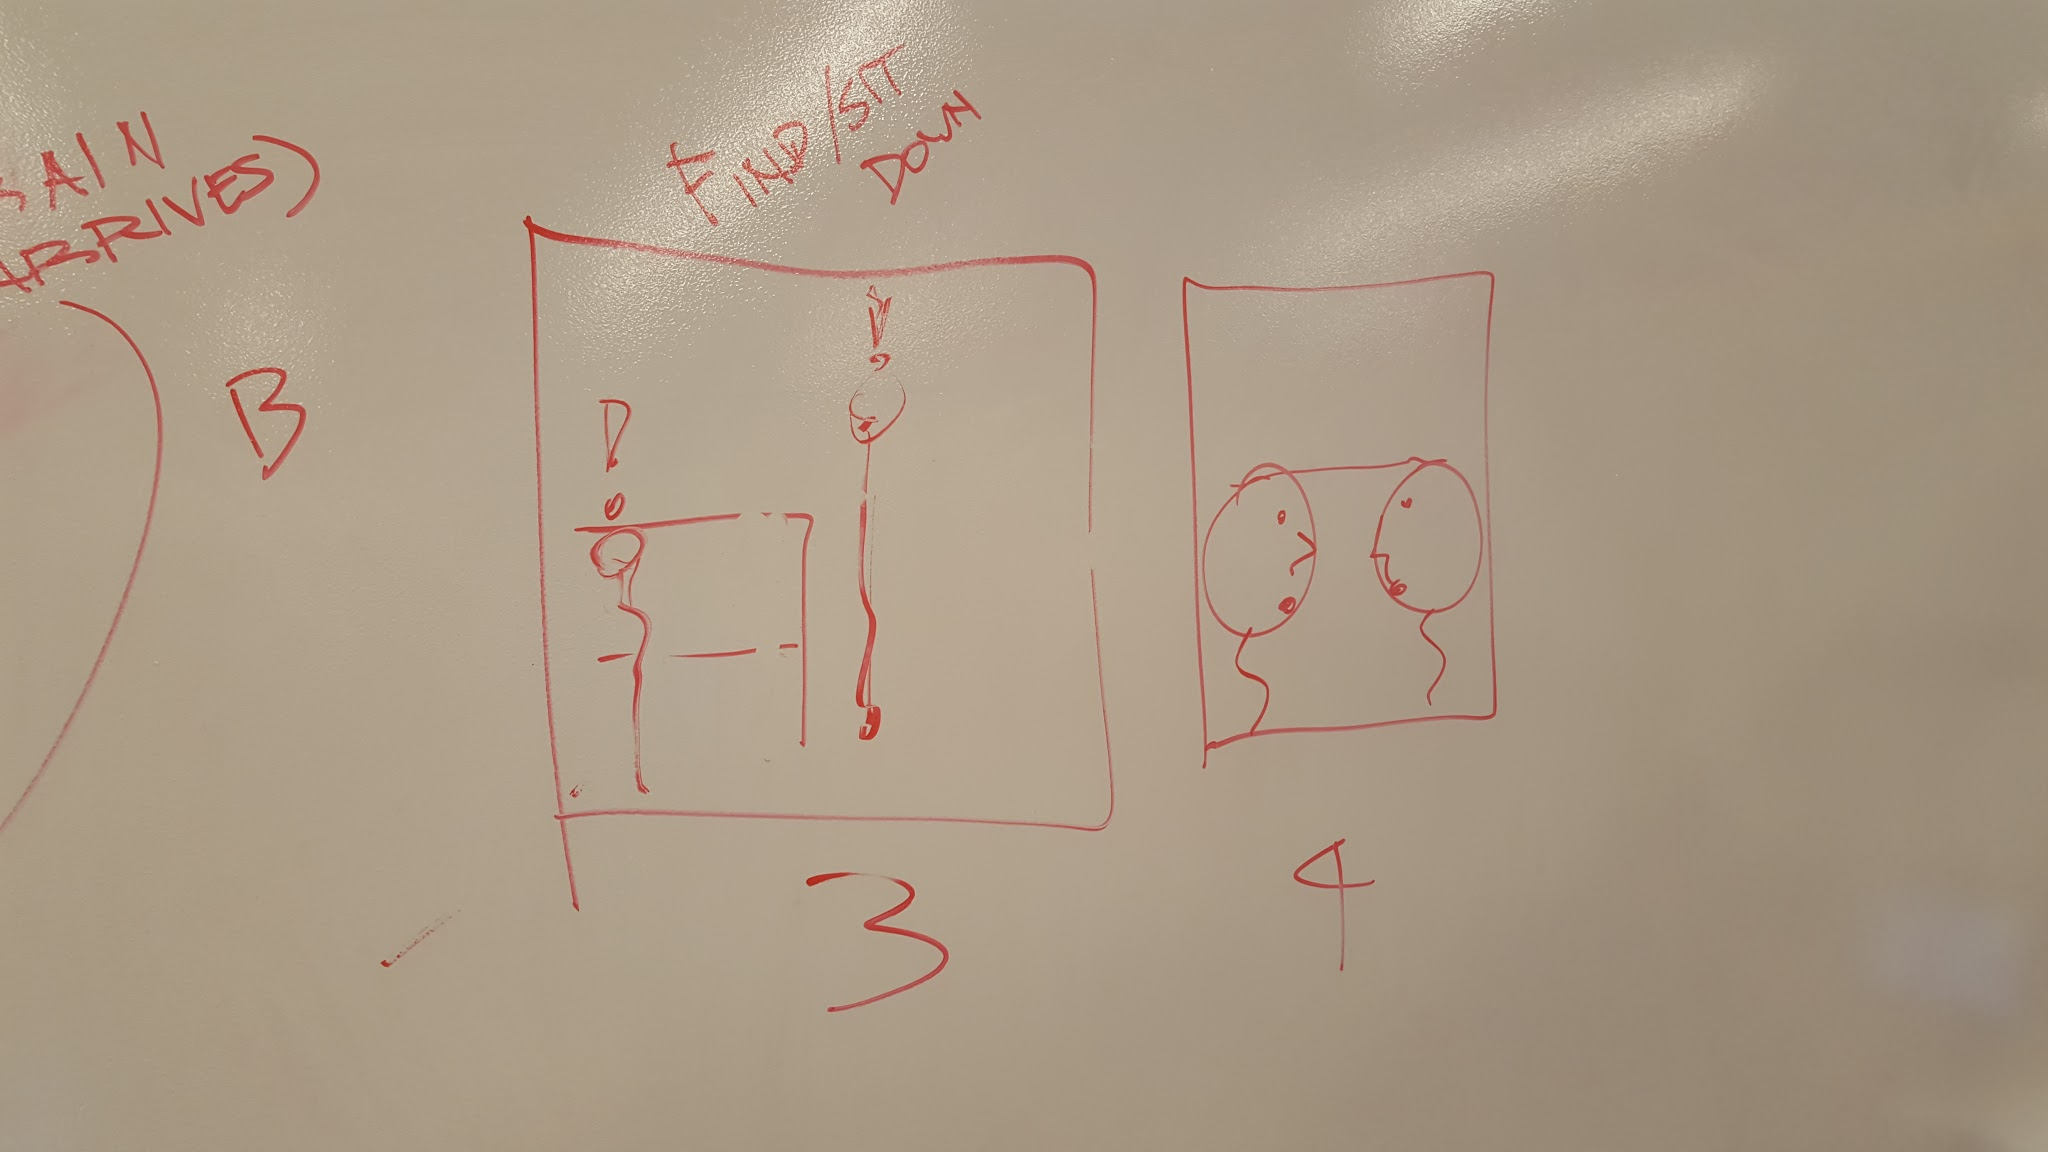 ARRIVES)
B
FIND/SIT
DOWN
D
3
4